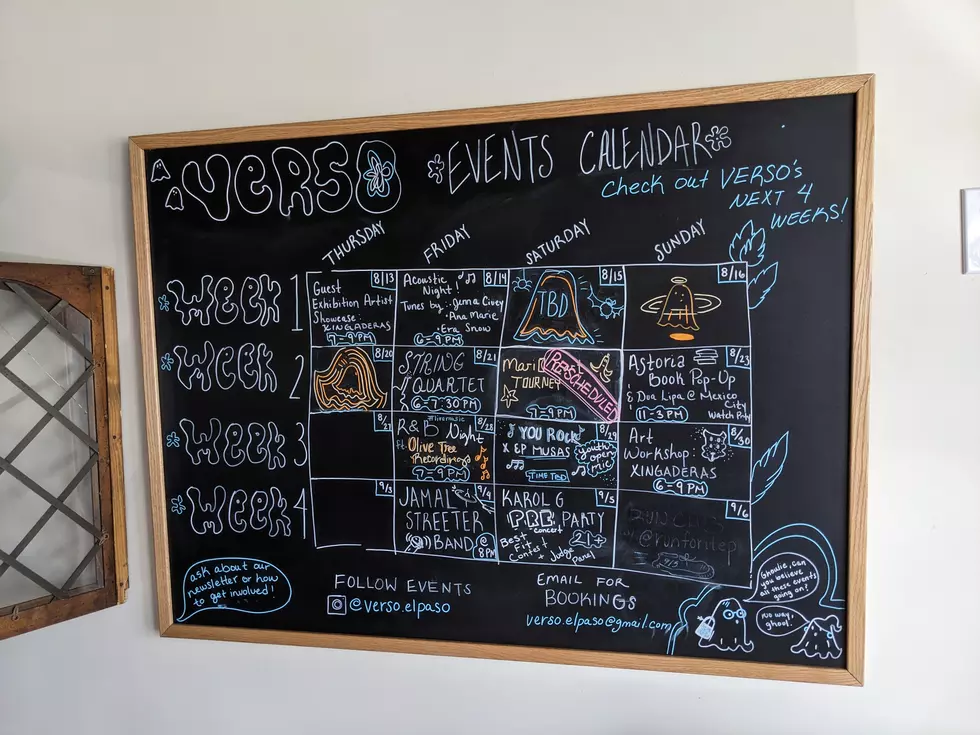 VERSO
*EVENTS CALENDAR*
Check out VERSO's
NEXT 4
WEEKS!
THURSDAY
FRIDAY
SATURDAY
SUNDAY
Week 1
8/13
Guest
Exhibition Artist
Showcase:
XINGADERAS
7-9PM
8/14
Acoustic
Night!
Tunes by: Jenna Civey
Ana Marie
Era Snow
6-9PM
8/15
TBD
8/16
Week 2
8/20
8/21
STRING
QUARTET
6-7:30PM
Mari
TOURNEY
RESCHEDULED
7-9PM
8/23
Astoria
Book Pop-Up
& Dua Lipa @ Mexico
City
Watch Party
11-3PM
Week 3
8/27
8/28
R&B Night
ft. Olive Tree
Recordings
7-9PM
8/29
YOU ROCK
X EP MUSAS
youth open
mic
TIME TBD
8/30
Art
Workshop:
XINGADERAS
6-9PM
Week 4
9/3
9/4
JAMAL
STREETER
BAND @
8PM
9/5
KAROL G
PRE PARTY
concert
Best
Fit
Contest
21+
+ Judge
Panel
9/6
RUN CLUB
@runforitep
ask about our
newsletter or how
to get involved!
FOLLOW EVENTS
@verso.elpaso
EMAIL FOR
BOOKINGS
verso.elpaso@gmail.com
Ghoulie, can
you believe
all these events
going on?
No way,
ghoul!